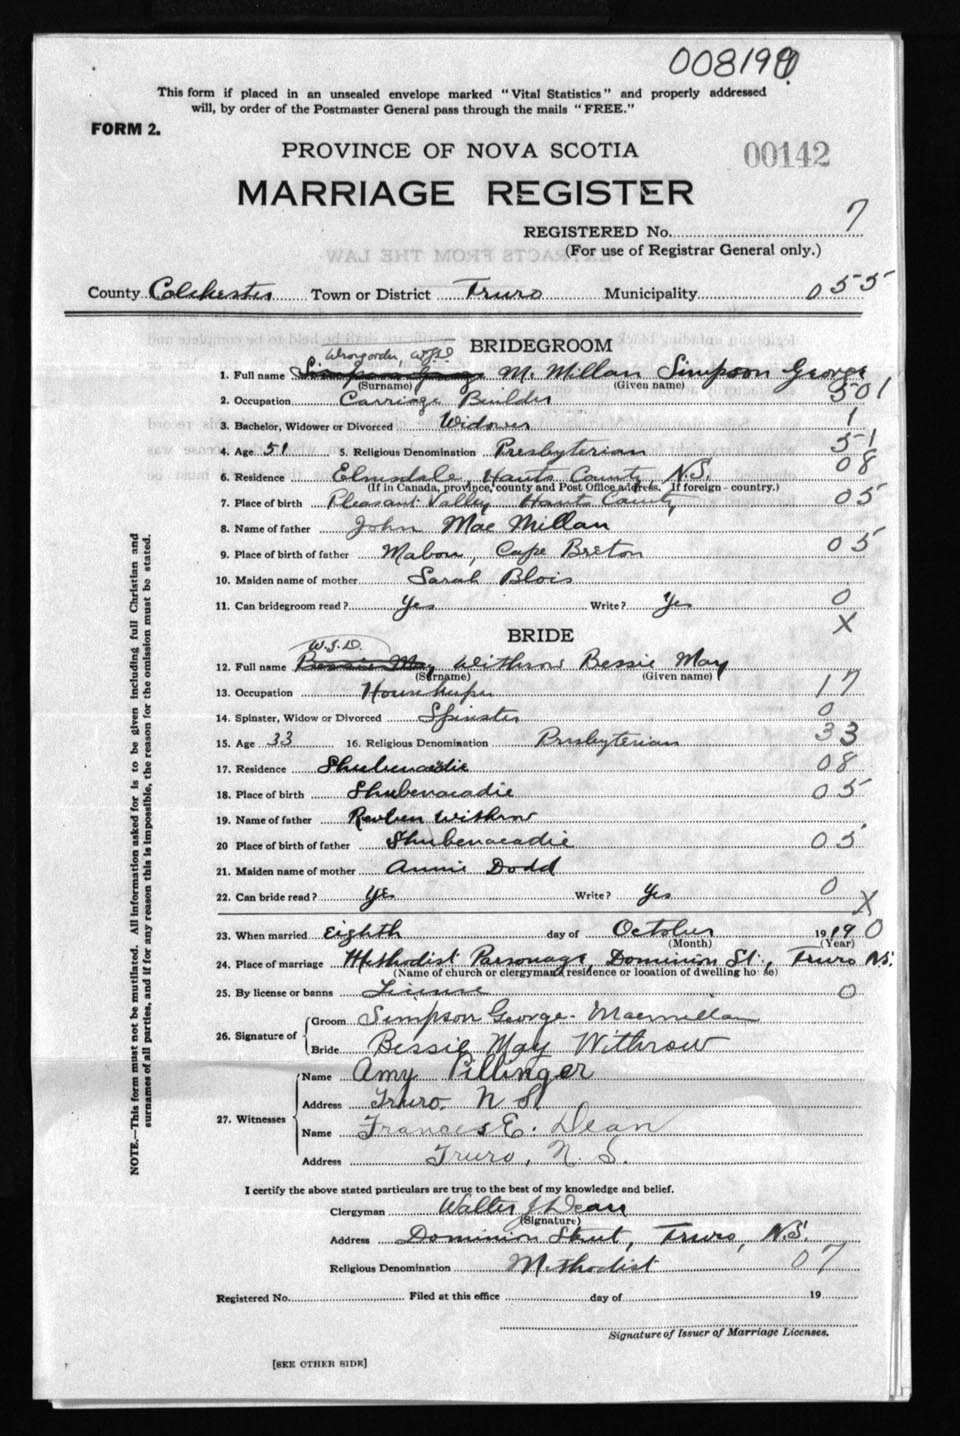 008199
This form if placed in an unsealed envelope marked "Vital Statistics" and properly addressed
will, by order of the Postmaster General pass through the mails "FREE."
FORM 2.
PROVINCE OF NOVA SCOTIA
00142
MARRIAGE REGISTER
REGISTERED No. 7
(For use of Registrar General only.)
EXTRACTS FROM THE LAW
County Colchester Town or District Truro Municipality 055
BRIDEGROOM
Wrong order, W.J.D
1. Full name Simpson George McMillan Simpson George
(Surname) (Given name)
2. Occupation Carriage Builder 501
3. Bachelor, Widower or Divorced Widower 1
4. Age 51 5. Religious Denomination Presbyterian 51
6. Residence Elmsdale, Hants County, N.S. 08
(If in Canada, province, county and Post Office address. If foreign - country.)
7. Place of birth Pleasant Valley Hants County, 05
8. Name of father John MacMillan
9. Place of birth of father Mabou, Cape Breton 05
10. Maiden name of mother Sarah Blois
11. Can bridegroom read? Yes Write? Yes 0
X
BRIDE
W.J.D.
12. Full name Bessie May Withrow Bessie May
(Surname) (Given name)
13. Occupation Housekeeper 17
14. Spinster, Widow or Divorced Spinster 0
15. Age 33 16. Religious Denomination Presbyterian 33
17. Residence Shubenacadie 08
18. Place of birth Shubenacadie 05
19. Name of father Reuben Withrow
20 Place of birth of father Shubenacadie 05
21. Maiden name of mother Annie Dodd
22. Can bride read? Yes Write? Yes 0
X
23. When married Eighth day of October 1919 0
(Month) (Year)
24. Place of marriage Methodist Parsonage, Dominion St., Truro N.S.
(Name of church or clergyman's residence or location of dwelling house)
25. By license or banns License 0
26. Signature of Groom Simpson George Macmillan
Bride Bessie May Withrow
27. Witnesses Name Amy Pillinger
Address Truro. N S.
Name Frances E. Dean
Address Truro, N. S.
I certify the above stated particulars are true to the best of my knowledge and belief.
Clergyman Walter J Dean
(Signature)
Address Dominion Street, Truro, N.S.
Religious Denomination Methodist 07
Registered No. Filed at this office day of 19
Signature of Issuer of Marriage Licenses.
[SEE OTHER SIDE]
NOTE.—This form must not be mutilated. All information asked for is to be given including full Christian and
surnames of all parties, and if for any reason this is impossible, the reason for the omission must be stated.